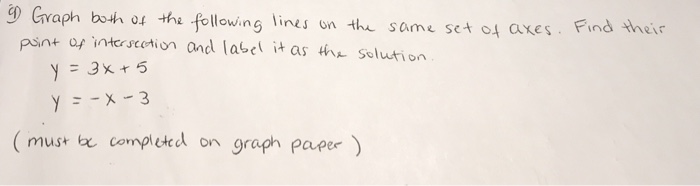 9) Graph both of the following lines on the same set of axes. Find their
point of intersection and label it as the solution.
y = 3x + 5
y = -x - 3
(must be completed on graph paper)